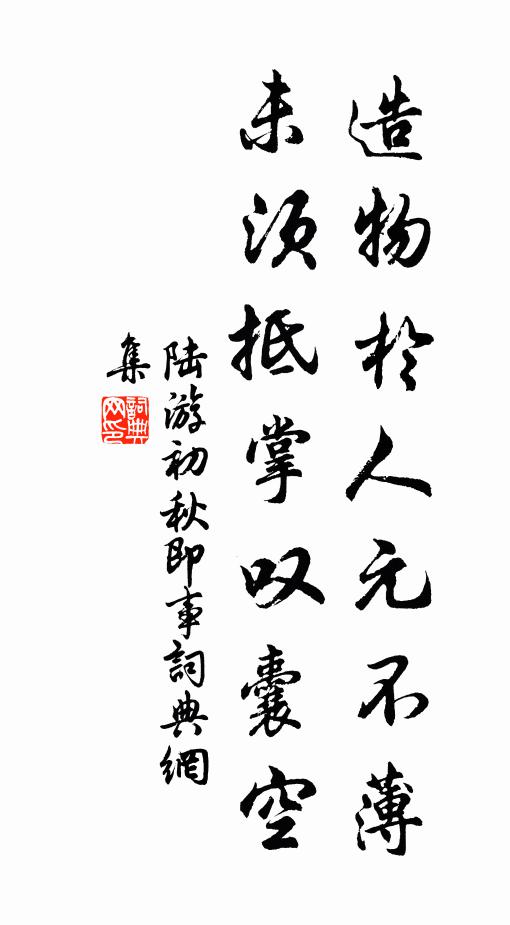 造物於人元不薄
未須抵掌叹囊空
陆游初秋即事詞典網
集
詞典网印